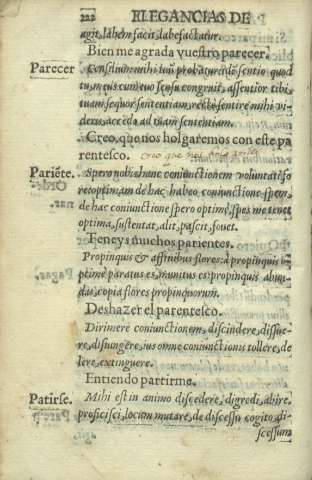 222 ELEGANCIAS DE
agit, labem facit, labefactatur.
Bien me agrada vuestro parecer.
Parecer Consilium mihi tuũ probatur: idẽ sentio quod
tu, meus cum tuo sẽsu congruit, assentior tibi,
tuam sequor sententiam, rectè sentire mihi vi-
deris, accedo ad tuam sententiam.
Creo, que nos holgaremos con este pa
rentesco. Creo que nos
Pariẽte. Spero nobis hanc coniunctionem voluptati fo
re: optimam de hac habeo coniunctione spem,
de hac coniunctione spero optimè, spes me tenet
optima, sustentat, alit, pascit, fouet.
Teneys muchos parientes.
Propinquis & affinibus flores: à propinquis o-
ptimè paratus es, munitus es: propinquis abun-
das, copia flores propinquorum.
Deshazer el parentesco.
Dirimere coniunctionem, discindere, dissue-
re, disiungere, ius omne coniunctionis tollere, de
lere, extinguere.
Entiendo partirme.
Patirse. Mihi est in animo discedere, digredi, abire,
proficisci, locum mutare, de discessu cogito, di-
scessum